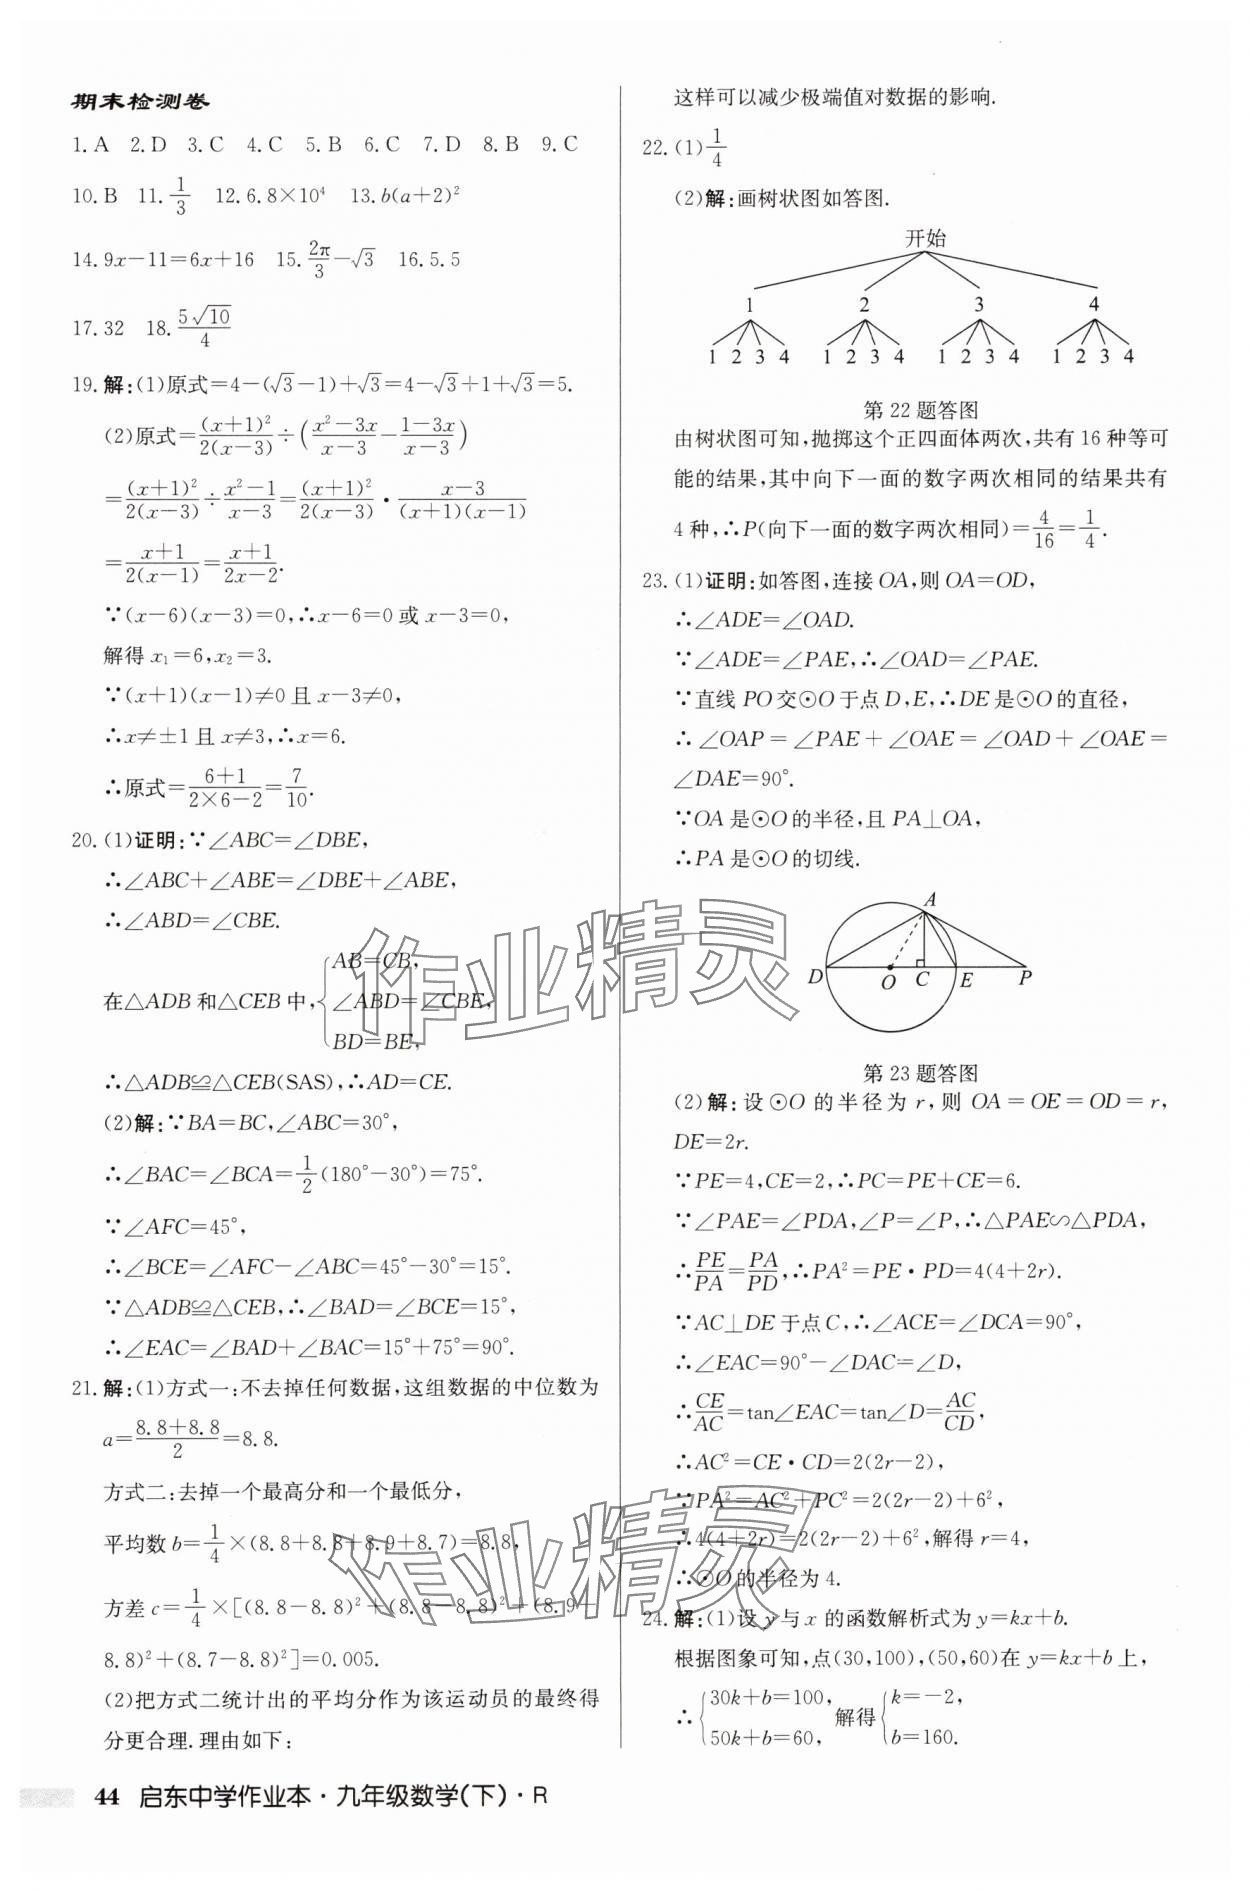 期末检测卷
1.A 2.D 3.C 4.C 5.B 6.C 7.D 8.B 9.C
10.B 11.1/3 12.6.8×10⁴ 13.b(a+2)²
14.9x-11=6x+16 15.2π/3-√3 16.5.5
17.32 18.5√10/4
19.解:(1)原式=4-(√3-1)+√3=4-√3+1+√3=5.
(2)原式=(x+1)²/2(x-3)÷(x²-3x/x-3-1-3x/x-3)
=(x+1)²/2(x-3)÷x²-1/x-3=(x+1)²/2(x-3)·x-3/(x+1)(x-1)
=x+1/2(x-1)=x+1/2x-2.
∵(x-6)(x-3)=0,∴x-6=0或x-3=0,
解得x₁=6,x₂=3.
∵(x+1)(x-1)≠0且x-3≠0,
∴x≠±1且x≠3,∴x=6.
∴原式=6+1/2×6-2=7/10.
20.(1)证明:∵∠ABC=∠DBE,
∴∠ABC+∠ABE=∠DBE+∠ABE,
∴∠ABD=∠CBE.
在△ADB和△CEB中,{AB=CB,
∠ABD=∠CBE,
BD=BE,
∴△ADB≌△CEB(SAS),∴AD=CE.
(2)解:∵BA=BC,∠ABC=30°,
∴∠BAC=∠BCA=1/2(180°-30°)=75°.
∵∠AFC=45°,
∴∠BCE=∠AFC-∠ABC=45°-30°=15°.
∵△ADB≌△CEB,∴∠BAD=∠BCE=15°,
∴∠EAC=∠BAD+∠BAC=15°+75°=90°.
21.解:(1)方式一:不去掉任何数据,这组数据的中位数为
a=8.8+8.8/2=8.8.
方式二:去掉一个最高分和一个最低分,
平均数b=1/4×(8.8+8.8+8.9+8.7)=8.8,
方差c=1/4×[(8.8-8.8)²+(8.8-8.8)²+(8.9-
8.8)²+(8.7-8.8)²]=0.005.
(2)把方式二统计出的平均分作为该运动员的最终得
分更合理.理由如下:
这样可以减少极端值对数据的影响.
22.(1)1/4
(2)解:画树状图如答图.
开始
1 2 3 4
1 2 3 4 1 2 3 4 1 2 3 4 1 2 3 4
第22题答图
由树状图可知,抛掷这个正四面体两次,共有16种等可
能的结果,其中向下一面的数字两次相同的结果共有
4种,∴P(向下一面的数字两次相同)=4/16=1/4.
23.(1)证明:如答图,连接OA,则OA=OD,
∴∠ADE=∠OAD.
∵∠ADE=∠PAE,∴∠OAD=∠PAE.
∵直线PO交⊙O于点D,E,∴DE是⊙O的直径,
∴∠OAP=∠PAE+∠OAE=∠OAD+∠OAE=
∠DAE=90°.
∵OA是⊙O的半径,且PA⊥OA,
∴PA是⊙O的切线.
A
D O C E P
第23题答图
(2)解:设⊙O的半径为r,则OA=OE=OD=r,
DE=2r.
∵PE=4,CE=2,∴PC=PE+CE=6.
∵∠PAE=∠PDA,∠P=∠P,∴△PAE∽△PDA,
∴PE/PA=PA/PD,∴PA²=PE·PD=4(4+2r).
∵AC⊥DE于点C,∴∠ACE=∠DCA=90°,
∴∠EAC=90°-∠DAC=∠D,
∴CE/AC=tan∠EAC=tan∠D=AC/CD,
∴AC²=CE·CD=2(2r-2),
∵PA²=AC²+PC²=2(2r-2)+6²,
∴4(4+2r)=2(2r-2)+6²,解得r=4,
∴⊙O的半径为4.
24.解:(1)设y与x的函数解析式为y=kx+b.
根据图象可知,点(30,100),(50,60)在y=kx+b上,
∴{30k+b=100, 解得{k=-2,
50k+b=60, b=160.
作业精灵
作业精灵
44 启东中学作业本·九年级数学(下)·R